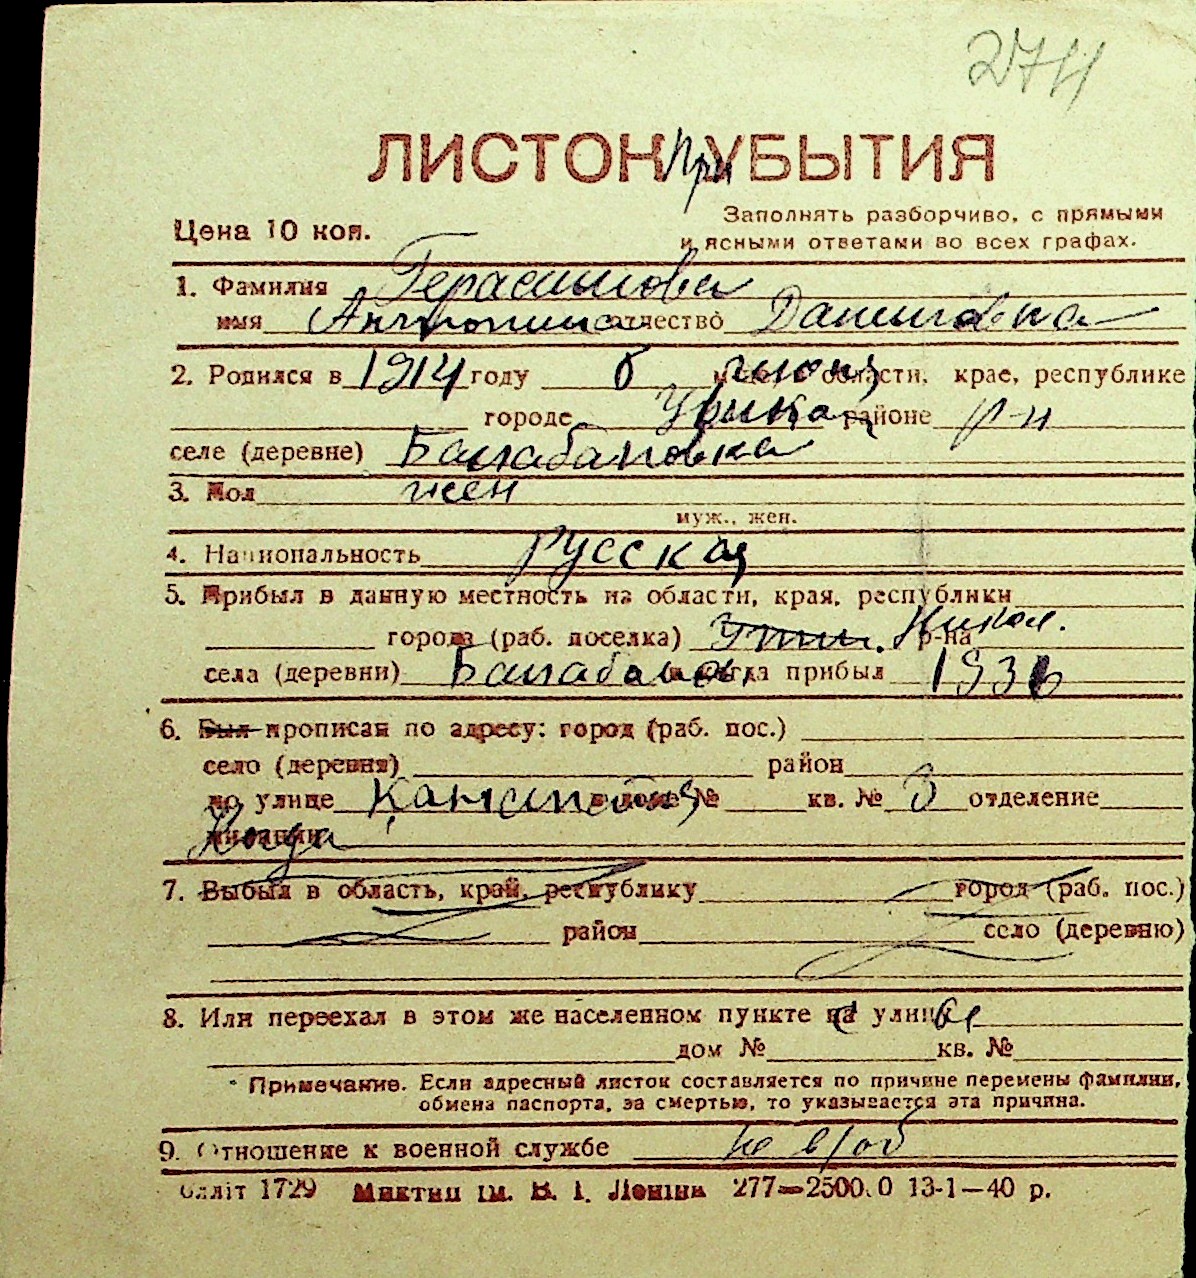 2711
ЛИСТОК При УБЫТИЯ
Цена 10 коп.
Заполнять разборчиво, с прямыми
и ясными ответами во всех графах.
1. Фамилия Герасимова
имя Антонина отчество Даниловна
2. Родился в 1914 году 6 июня области, крае, республике
городе районе р-н
селе (деревне) Балабановка
3. Пол жен
муж., жен.
4. Национальность русская
5. Прибыл в данную местность из области, края, республики
города (раб. поселка) Никол. р-на
села (деревни) Балабан когда прибыл 1936
6. Был прописан по адресу: город (раб. пос.)
село (деревня) район
по улице в доме № кв. № 3 отделение
милиции
7. Выбыл в область, край, республику город (раб. пос.)
район село (деревню)
8. Или переехал в этом же населенном пункте на улицу
дом № кв. №
Примечание. Если адресный листок составляется по причине перемены фамилии,
обмена паспорта, за смертью, то указывается эта причина.
9. Отношение к военной службе не в/об
Облліт 1729 ім. В. І. Леніна 277—25000 13-1—40 р.